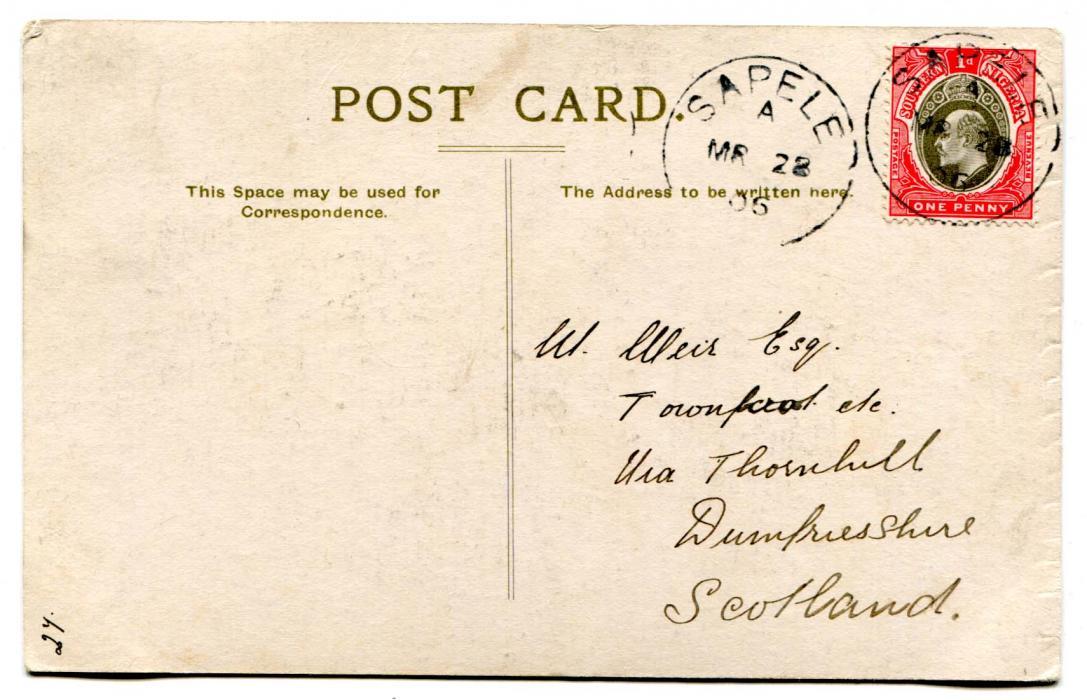 POST CARD.
SAPELE
A
MR 28
06
SAPELE
A
MR 28
SOUTHERN 1d NIGERIA
POSTAGE REVENUE
ONE PENNY
This Space may be used for
Correspondence.
The Address to be written here.
W. Weir Esq.
Townfoot etc.
Via Thornhill
Dumfriesshire
Scotland.
27.